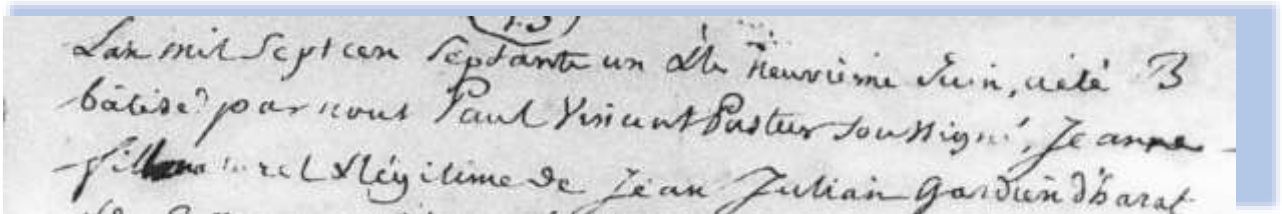 L'an mil Sept cen Septante un & le neuvieme Juin, a eté B
bâtisé par nous Paul Vincent Pasteur soussigné, Jeanne
fille naturel & légitime de Jean Julian gardien d'harat